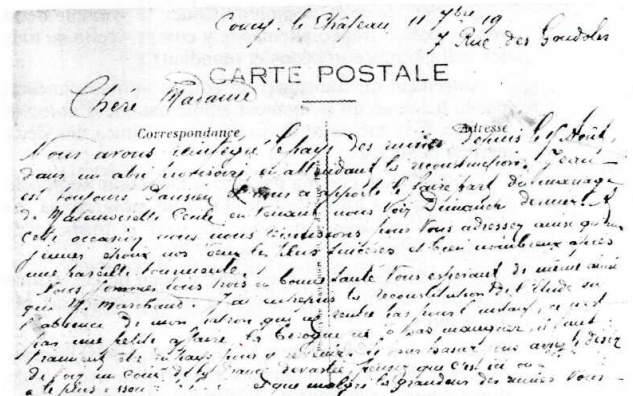 Coucy le Château 11 7bre 19
7 Rue des Gondoles
CARTE POSTALE
Chère Madame
Correspondance
Adresse
Nous avons réintégré le pays des ruines depuis le 15 Août,
dans un abri provisoire, en attendant la reconstruction.
est toujours Parisien nous a apporté le faire part du mariage
de Mademoiselle Cécile en venant nous voir Dimanche dernier. A
cette occasion nous nous réunissons pour vous adresser ainsi qu'aux
jeunes époux nos vœux les plus sincères et bien nombreux après
une pareille tourmente.
Nous sommes tous trois en bonne santé vous espérant de même ainsi
que M. Marchand. J'ai entrepris la reconstitution de l'étude en
l'absence de mon patron qui ne rentre pas pour l'instant, ce n'est
pas une petite affaire, la besogne ne
pas
vous avez le désir
de voir un coin de la France dévastée, pensez que c'est ici
le plus que malgré la grandeur des ruines vous